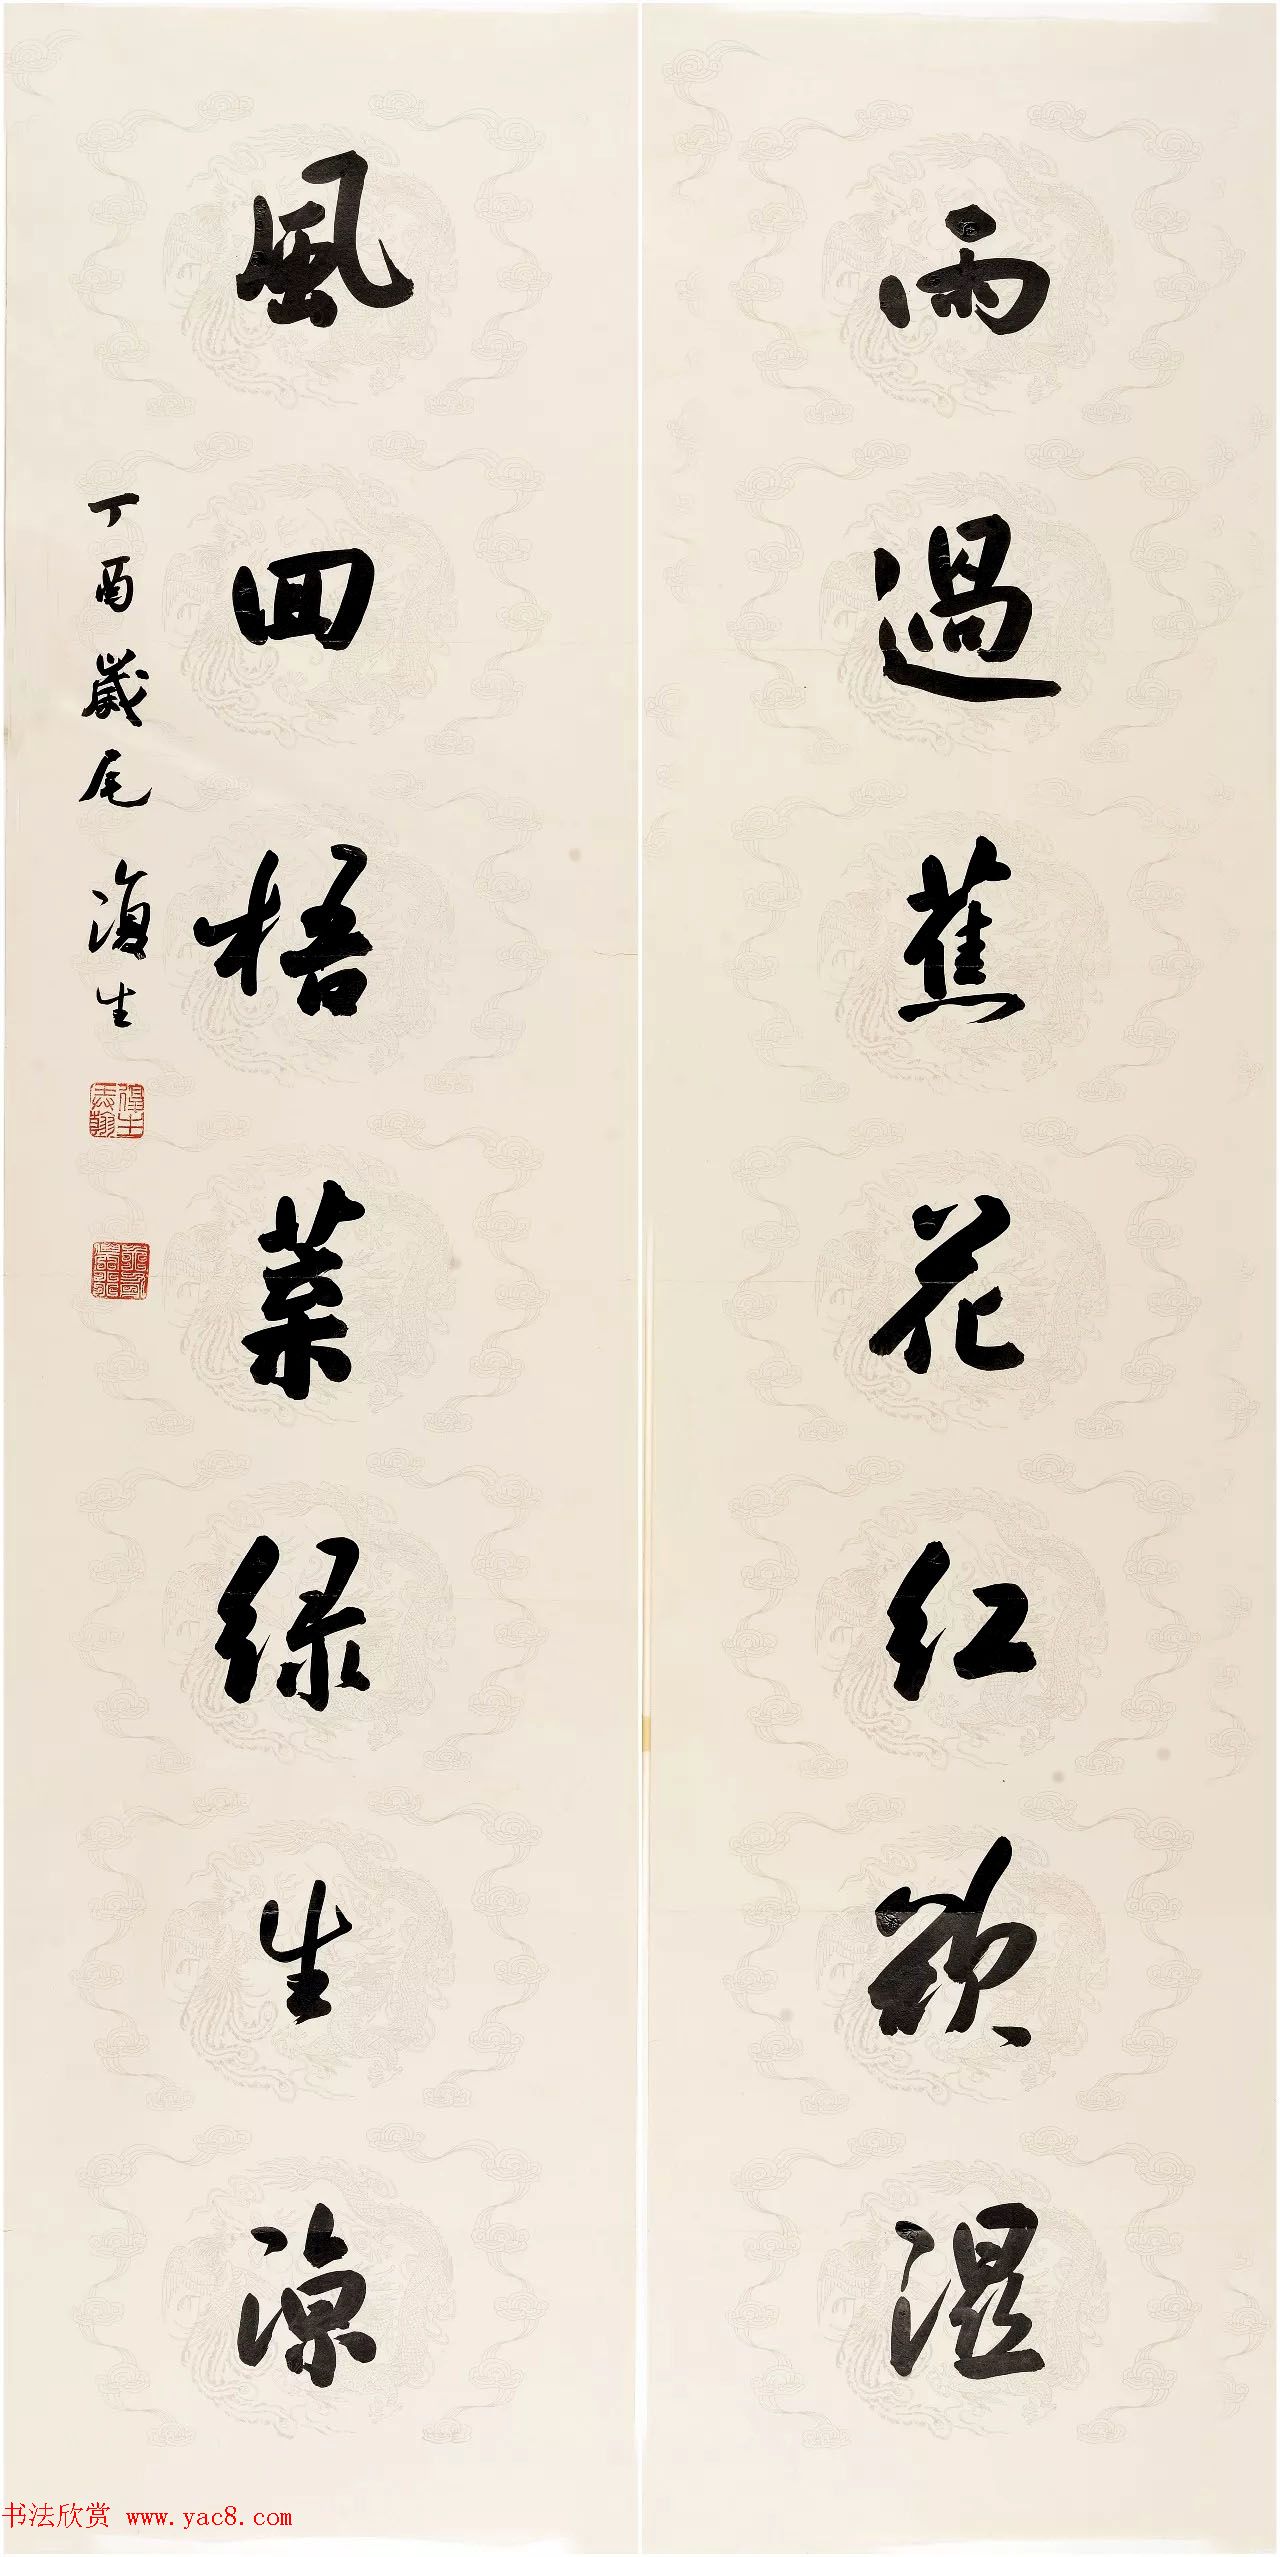 雨過蕉花红欲濕
風回梧葉绿生凉
丁酉歲尾 復生
书法欣赏 www.yac8.com